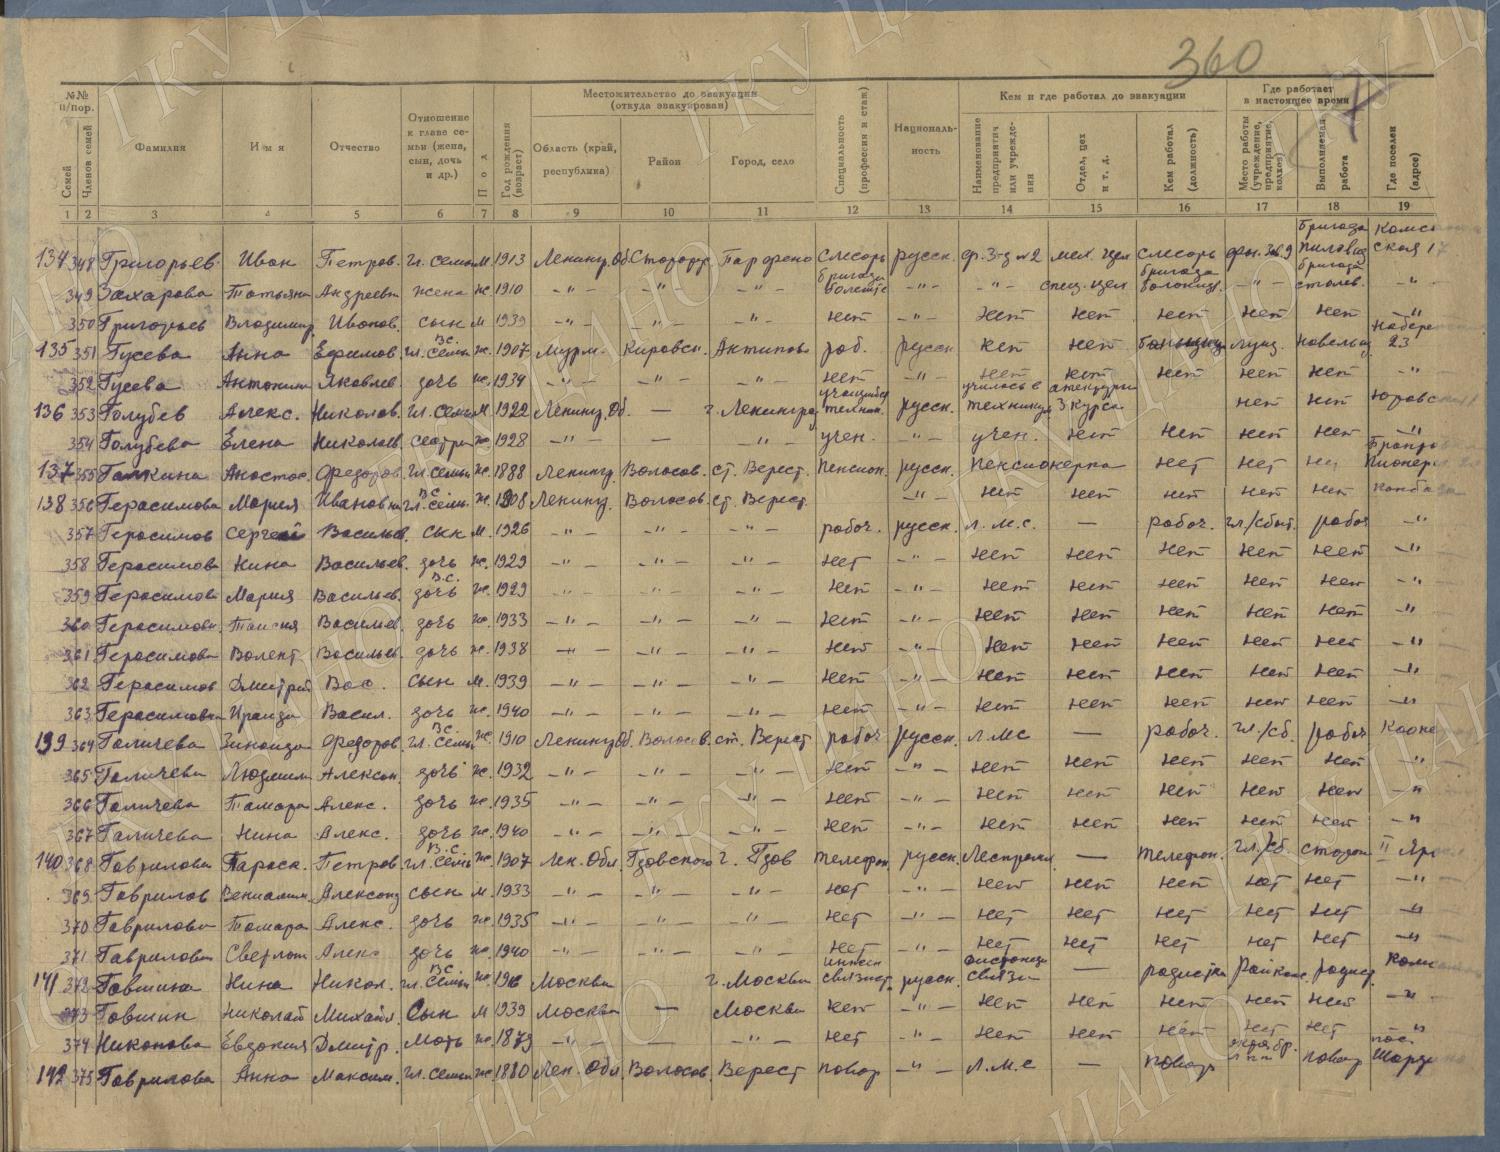 360
№№ п/пор.
Семей
Членов семей
Фамилия
Имя
Отчество
Отношение к главе семьи (жена, сын, дочь и др.)
Пол
Год рождения (возраст)
Местожительство до эвакуации (откуда эвакуирован)
Область (край, республика)
Район
Город, село
Специальность (профессия и стаж)
Национальность
Кем и где работал до эвакуации
Наименование предприятия или учреждения
Отдел, цех и т. д.
Кем работал (должность)
Где работает в настоящее время
Место работы (учреждение, предприятие, колхоз)
Выполняемая работа
Где поселен (адрес)
1 2 3 4 5 6 7 8 9 10 11 12 13 14 15 16 17 18 19
134 348 Григорьев Иван Петров. гл. семьи м. 1913 Ленингр. Об. слесарь русск. мех. цех слесарь
349 Захарова Татьяна Андреевн жена ж. 1910 -"- -"- -"- -"- -"- спец. цех -"- -"-
350 Григорьев Владимир Иванов. сын м 1939 -"- -"- -"- нет -"- нет нет нет нет нет -"-
135 351 Гусева Анна Ефимов. гл. семьи вс. ж. 1907 Мурм. Кировск. раб. русск нет нет 23
352 Гусева Антонина Яковлев. дочь ж. 1934 -"- -"- -"- нет -"- нет нет нет нет нет -"-
136 353 Голубев Алекс. Николаев. гл. семьи м. 1922 Ленингр. Об. — г. Ленинград учащийся технич. русск. училось в техникум 3 курса нет нет
354 Голубева Елена Николаев. сестра ж. 1928 -"- — -"- учен. -"- учен. нет нет нет нет -"-
137 355 Галкина Анастас. Федоров. гл. семьи ж. 1888 Ленингр. Волосов. ст. Верест. пенсион. русск. пенсионерка нет нет нет
138 356 Герасимова Мария Ивановна гл. семьи вс. ж. 1908 Ленингр. Волосов. ст. Верест. -"- нет нет нет нет нет
357 Герасимов Сергей Васильев. сын м. 1926 -"- -"- -"- рабоч. русск. Л.М.С. — рабоч. гл/сбыт. рабоч -"-
358 Герасимова Нина Васильев. дочь ж. 1929 -"- -"- -"- нет -"- нет нет нет нет нет -"-
359 Герасимова Мария Васильев. дочь вс. ж. 1929 -"- -"- -"- нет -"- нет нет нет нет нет -"-
360 Герасимова Таисия Васильев. дочь ж. 1933 -"- -"- -"- нет -"- нет нет нет нет нет -"-
361 Герасимова Валент Васильев. дочь ж. 1938 -"- -"- -"- нет -"- нет нет нет нет нет -"-
362 Герасимов Дмитрий Вас. сын м. 1939 -"- -"- -"- нет -"- нет нет нет нет нет -"-
363 Герасимова Ираида Васил. дочь ж. 1940 -"- -"- -"- нет -"- нет нет нет нет нет -"-
139 364 Галичева Зинаида Федоров. гл. семьи вс. ж. 1910 Ленингр. Об. Волосов. ст. Верест рабоч русск. Л.МС — рабоч. гл./сб. рабоч
365 Галичева Людмила Алексан. дочь ж. 1932 -"- -"- -"- нет -"- нет нет нет нет нет -"-
366 Галичева Тамара Алекс. дочь ж. 1935 -"- -"- -"- нет -"- нет нет нет нет нет -"-
367 Галичева Нина Алекс. дочь ж. 1940 -"- -"- -"- нет -"- нет нет нет нет нет -"-
140 368 Гаврилова Параск. Петров. гл. семьи вс. ж. 1907 Лен. Обл. Гдовского г. Гдов телефон. русск. Леспромх — телефон. гл/сб.
369 Гаврилов Вениамин Александ сын м 1933 -"- -"- -"- нет -"- нет нет нет нет нет -"-
370 Гаврилова Тамара Алекс. дочь ж. 1935 -"- -"- -"- нет -"- нет нет нет нет нет -"-
371 Гаврилова Светлан Алекс дочь ж. 1940 -"- -"- -"- нет -"- нет нет нет нет нет -"-
141 372 Говшина Нина Никол. гл. семьи вс. ж. Москва г. Москва связист. русск. связи — радистка радист.
373 Говшин Николай Михайл. Сын м 1939 Москва — Москва нет -"- нет нет нет нет нет -"-
374 Никонова Евдокия Дмитр. мать ж. 1879 -"- — -"- нет -"- нет нет нет нет нет -"-
142 375 Гаврилова Анна Максим. гл. семьи ж. 1880 Лен. Обл. Волосов. Верест повар -"- Л.М.С — повар повар